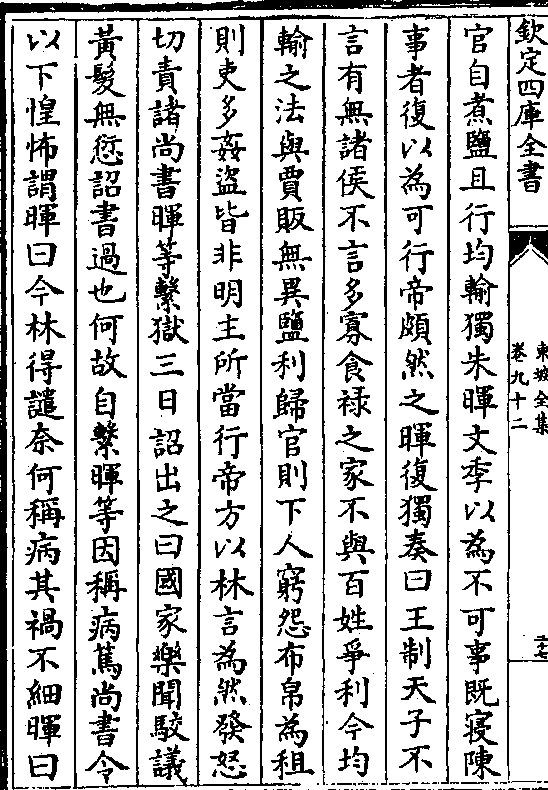 欽定四庫全書
東坡全集
卷九十二
官自煮鹽且行均輸獨朱暉文季以為不可事既寢陳
事者復以為可行帝頗然之暉復獨奏曰王制天子不
言有無諸侯不言多寡食祿之家不與百姓爭利今均
輸之法與賈販無異鹽利歸官則下人窮怨布帛為租
則吏多姦盜皆非明主所當行帝方以林言為然發怒
切責諸尚書暉等繫獄三日詔出之曰國家樂聞駮議
黃髮無愆詔書過也何故自繫暉等因稱病篤尚書令
以下惶怖謂暉曰今林得譴奈何稱病其禍不細暉曰